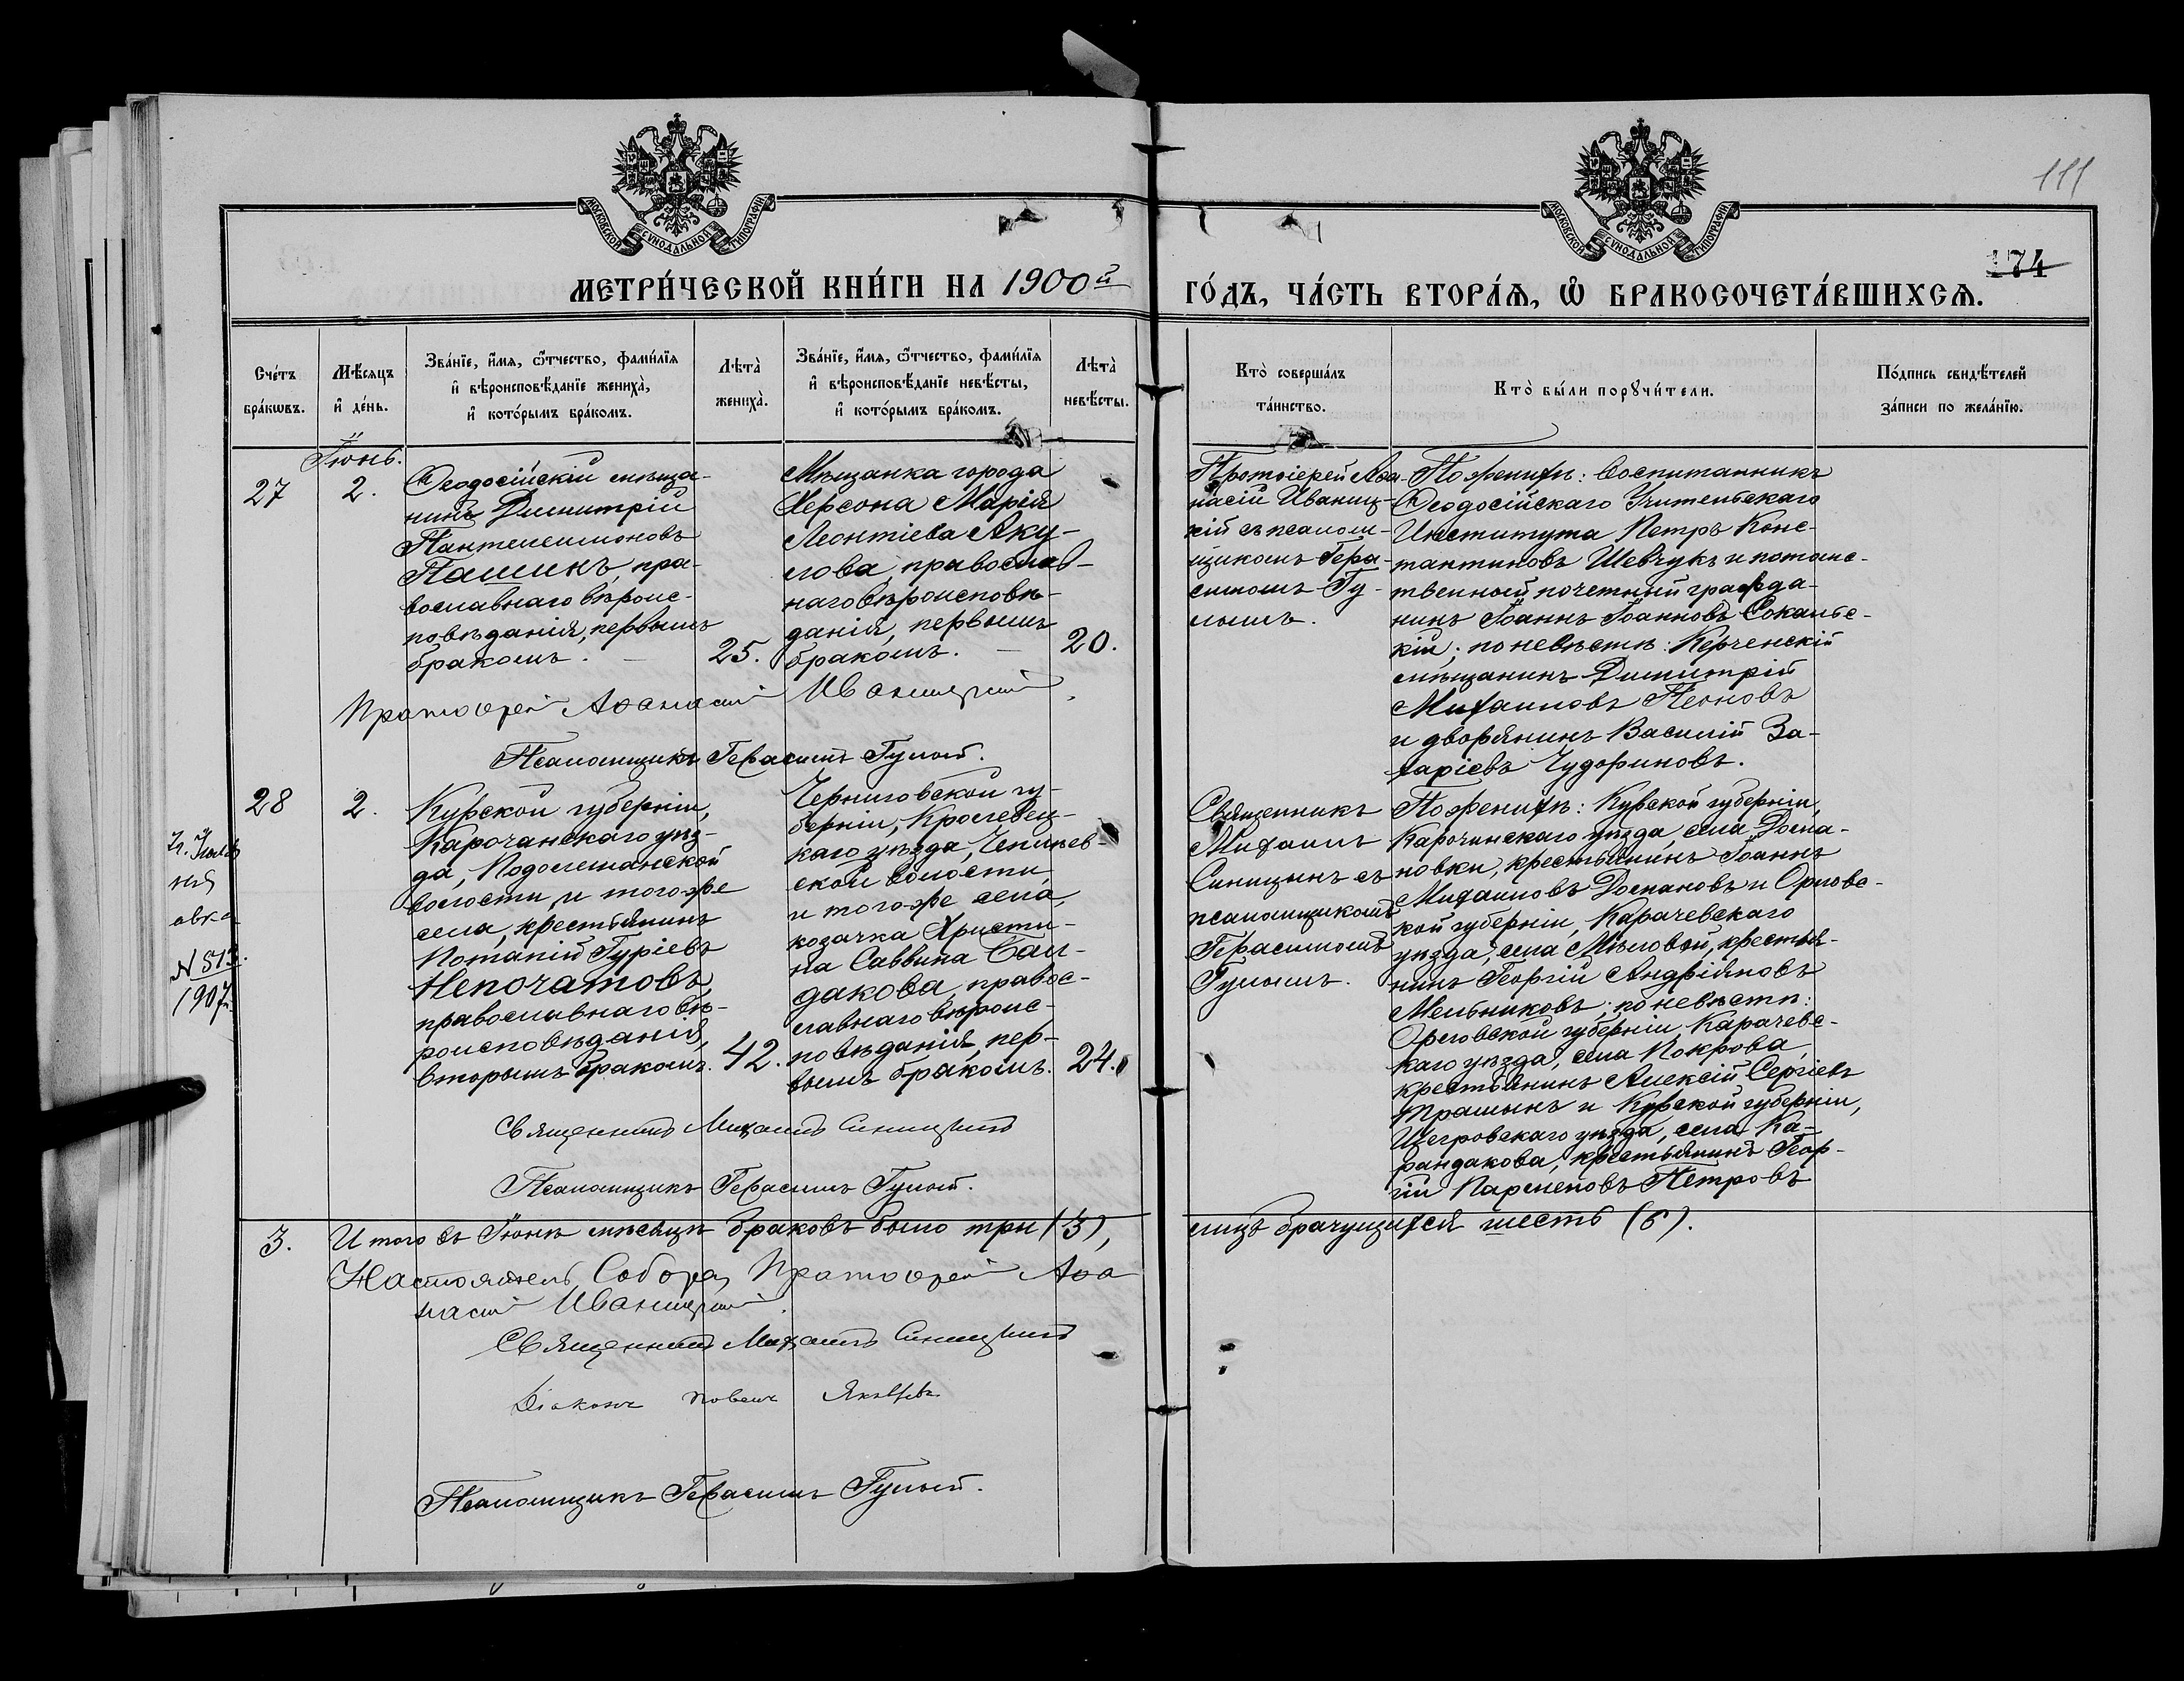 111
174
МОСКОВСКОЙ СѴНОДАЛЬНОЙ ТИПОГРАФІИ
МОСКОВСКОЙ СѴНОДАЛЬНОЙ ТИПОГРАФІИ
МЕТРИ́ЧЕСКОЙ КНИ́ГИ НА 1900й
ГО́ДЪ, ЧА́СТЬ ВТОРА́Ѧ, Ѽ БРАКОСОЧЕТА́ВШИХСѦ.
Сче́тъ
бра́кѡвъ.
Мѣ́сѧцъ
и҆ де́нь.
Зва́нїе, и҆́мѧ, ѻ҆́тчество, фами́лїѧ
и҆ вѣроисповѣ́данїе жениха̀,
и҆ кото́рымъ бра́комъ.
Лѣта̀
жениха̀.
Зва́нїе, и҆́мѧ, ѻ҆́тчество, фами́лїѧ
и҆ вѣроисповѣ́данїе невѣ́сты,
и҆ кото́рымъ бра́комъ.
Лѣта̀
невѣ́сты.
Кто̀ соверша́лъ
та́инство.
Кто̀ бы́ли порꙋчи́тели.
По́дпись свидѣ́телей
за́писи по жела́нїю.
Іюнь.
27
2.
Ѳеодосійскій мѣща-
нинъ Димитрій
Пантелеимоновъ
Пашинъ, пра-
вославнаго вѣроис-
повѣданія, первымъ
бракомъ. —
25.
Мѣщанка города
Херсона Марія
Леонтіева Аку-
лова, православ-
наго вѣроисповѣ-
данія, первымъ
бракомъ. —
20.
Протоіерей Аѳа-
насій Иваниц-
кій съ псалом-
щикомъ Гера-
симомъ Гу-
лымъ.
По женихѣ: воспитанникъ
Ѳеодосійскаго Учительскаго
Института Петръ Конс-
тантиновъ Шевчукъ и потомс-
твенный почетный гражда-
нинъ Іоаннъ Іоанновъ Сокальс-
кій; по невѣстѣ: Керченскій
мѣщанинъ Димитрій
Михаиловъ Леоновъ
и дворянинъ Василій За-
харіевъ Чудориновъ.
Протоіерей Аѳанасій Иваницкій
Псаломщикъ Герасимъ Гулый.
28
2.
Курской губерніи,
Карочанскаго уѣз-
да, Подолешанской
волости, и того-же
села, крестьянинъ
Потапій Гуріевъ
Непочатовъ,
православнаго вѣ-
роисповѣданія,
вторымъ бракомъ.
42.
Черниговской гу-
берніи, Кролевец-
каго уѣзда,
ской волости,
и того-же села,
козачка Христи-
на Саввина Бал-
дакова, правос-
лавнаго вѣроис-
повѣданія, пер-
вымъ бракомъ.
24.
Священникъ
Михаилъ
Синицынъ съ
псаломщикомъ
Герасимомъ
Гулымъ.
По женихѣ: Курской губерніи,
Карочинскаго уѣзда, села Доспа-
новки, крестьянинъ Іоаннъ
Михаиловъ Доспановъ и Орловс-
кой губерніи, Карачевскаго
уѣзда, села Мѣловой, крестья-
нинъ Георгій Андріяновъ
Мельниковъ; по невѣстѣ:
Орловской губерніи, Карачевс-
каго уѣзда, села Покрова,
крестьянинъ Алексій Сергіевъ
Трашынъ и Курской губерніи,
Щегровскаго уѣзда, села Ка-
рандакова, крестьянинъ Геор-
гій Парменовъ Петровъ
N 513.
1907
Священникъ Михаилъ Синицынъ
Псаломщикъ Герасимъ Гулый.
3.
Итого въ Іюнѣ мѣсяцѣ браковъ было три (3),
лицъ брачущихся шесть (6).
Настоятель Собора, Протоіерей Аѳа-
насій Иваницкій.
Священникъ Михаилъ Синицынъ
Діаконъ Павелъ Яковлевъ
Псаломщикъ Герасимъ Гулый.